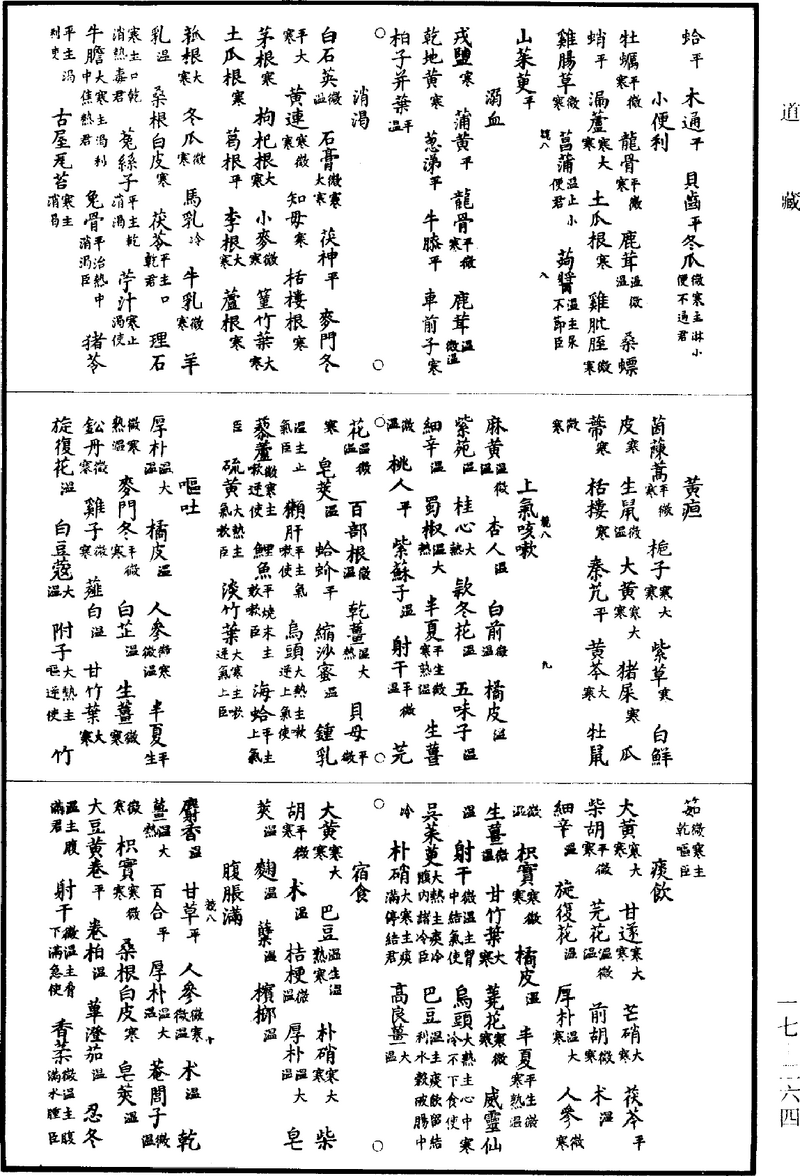 道藏
蛤平 木通平 貝齒平 冬瓜微寒主淋小便不通君
小便利
牡蠣平微寒 龍骨平微寒 鹿茸溫微溫 桑螵
蛸平 漏蘆寒大寒 土瓜根寒 雞肶胵微寒
雞腸草微寒 菖蒲溫止小便君 蒟醬溫主尿不節臣
山茱萸平
號八 八
溺血
戎鹽寒 蒲黃平 龍骨平微寒 鹿茸溫微溫
乾地黃寒 蔥涕平 牛膝平 車前子寒
柏子并葉平溫
○ 消渴 ○
白石英微溫 石膏微寒大寒 茯神平 麥門冬
平大寒 黃連寒微寒 知母寒 栝樓根寒
茅根寒 枸杞根大寒 小麥微寒 篁竹葉大寒
土瓜根寒 葛根平 李根大寒 蘆根寒
菰根大寒 冬瓜微寒 馬乳冷 牛乳微寒 羊
乳溫 桑根白皮寒 茯苓平主口乾君 理石
寒主口乾消熱毒君 菟絲子平主乾消渴 苧汁寒止渴使
牛膽大寒主渴利中焦熱君 兔骨平治熱中消渴臣 猪苓
平主渴利使 古屋瓦苔寒主消渴
黃疸
茵蔯蒿平微寒 梔子寒大寒 紫草寒 白鮮
皮寒 生鼠微溫 大黃寒大寒 猪屎寒 瓜
蔕寒 栝樓寒 秦艽平 黃芩大寒 牡鼠
微寒
上氣咳嗽
號八 九
麻黃溫微溫 杏人溫 白前微溫 橘皮溫
紫菀溫 桂心大熱 款冬花溫 五味子溫
細辛溫 蜀椒溫大熱 半夏平生微寒熟溫 生薑
微溫 桃人平 紫蘇子溫 射干平微溫 芫
花溫微溫 百部根微溫 乾薑溫大熱 貝母平微
寒 皂莢溫 蛤蚧平 縮沙蜜溫 鍾乳
溫主上氣臣 獺肝平主氣嗽使 烏頭大熱主嗽逆上氣使
藜蘆微寒主嗽逆使 鯉魚平燒末主欬嗽臣 海蛤平主上氣
臣 硫黃大熱主氣嗽臣 淡竹葉大寒主嗽逆氣上臣
嘔吐
厚朴溫大溫 橘皮溫 人參微寒微溫 半夏平生
微寒熟溫 麥門冬平微寒 白芷溫 生薑微寒
鈆丹微寒 雞子微寒 薤白溫 甘竹葉大寒
旋復花溫 白豆蔻大溫 附子大熱主嘔逆使 竹
茹微寒主乾嘔臣
痰飲
大黃寒大寒 甘遂寒大寒 芒硝大寒 茯苓平
柴胡平微寒 芫花溫微溫 前胡微寒 术溫
細辛溫 旋復花溫 厚朴溫大溫 人參微寒
微溫 枳實寒微寒 橘皮溫 半夏平生微寒熟溫
生薑微溫 甘竹葉大寒 蕘花寒微寒 威靈仙
溫 射干微溫主胃中結氣使 烏頭大熱主心中寒冷不下食使
吳茱萸大熱主痰冷腹內諸冷臣 巴豆溫主痰飲留結利水穀破腸中
冷 朴硝大寒主痰滿停結君 高良薑大溫
○ 宿食 ○
大黃寒大寒 巴豆溫生溫熟寒 朴硝寒大寒 柴
胡平微寒 术溫 桔梗微溫 厚朴溫大溫 皂
莢溫 麴溫 蘗溫 檳榔溫
腹脹滿
號八 十
麝香溫 甘草平 人參微寒微溫 术溫 乾
薑溫大熱 百合平 厚朴溫大溫 菴䕡子微寒微溫
微寒 枳實寒微寒 桑根白皮寒 皂莢溫
大豆黃卷平 卷柏溫 蓽澄茄溫 忍冬
溫主腹滿君 射干微溫主脅下滿急使 香葇微溫主腹滿水腫臣
一七—二六四